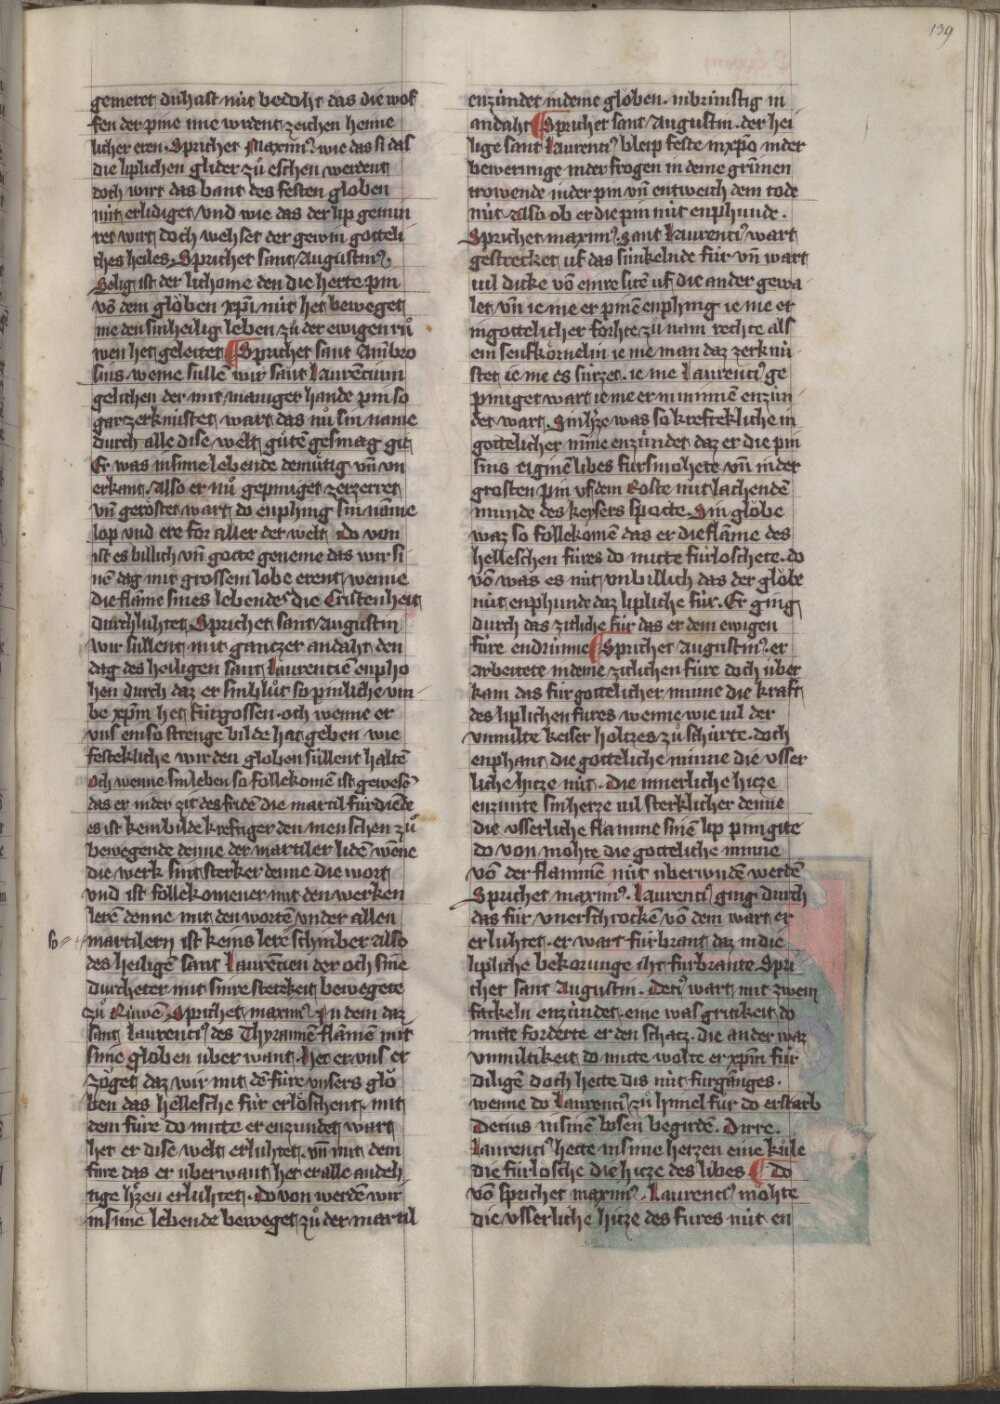 139
gemeret du hast nüt bedoht das die wof
fen der pine ime wrdent zeichen heime
licher eren. Sprichet Maximꝰ wie das si das
die liplichen glider zů eschen werdent
doch wirt das bant des festen globen
nüt erlidiget vnd wie das der lip gemin
ret wirt doch wehset der gewin götteli
ches heiles. Sprichet sant Augustinꝰ.
Selig ist der lichome den die herte pin
vō dem glöben xp̄i nüt het beweget
me den sin heilig leben zů der ewigen rů
wen het geleitet ¶ Sprichet sant Ambro
sius weme süllē wir sant Laurēcium
gelichen der mit maniger hande pin so
gar zerknüstet wart das nů sin name
durch alle dise welt gůtē gesmag git
Er was in sime lebende demůtig vn̄ vn
erkant. Also er nů gepiniget zerzerret
vn̄ geröstet wart do enphing sin name
lop vnd ere for aller der welt do von
ist es billich vn̄ gotte geneme das wir si
nē dag mit grossem lobe erent wenne
die flāme sines lebendes die Cristenheit
durchlühtet. Sprichet sant Augustin
wir süllent mit gantzer andaht den
dag des heiligen sant Laurenciē enpho
hen durch daz er sin blůt so pinliche vm
be xp̄m het fürgossen. och wenne er
vns ein so strenge bilde hat geben wie
festekliche wir den globen süllent haltē
Och wenne sin leben so follekomē ist gewesē
das er in der zit des fridē die martil fürdiēde
es ist kein bilde kreftiger den menschen zů
bewegende denne der martiler lidē wēne
die werk sint sterker denne die wort
vnd ist follekomener mit den werken
lerē denne mit den wortē vnder allen
so martilern ist keins lere schinber also
des heiligē sant Laurēcien der och sine
durcheter mit sinre stetekeit bewegete
zů Rüwē. Sprichet maximꝰ. In dem daz
sant Laurenciꝰ des Thyrannē flāmen mit
sime globen vberwant. het er vns er
zöget daz wir mit dē füre vnsers glö
ben das hellesche für erlöschent. mit
dem füre do mitte er enzundet wart
het er dise welt erlühtet. vn̄ mit dem
füre das er vberwant het er alle andeh
tige h̾zen erlühtet. do von werdē wir
in sime lebende beweget zů der martil
enzündet in deme glöben. inbrünstig in
andaht ¶ Sprichet sant Augustin. der hei
lige sant Laurenciꝰ bleip feste in xp̄o in der
beweringe in der frogen in deme grīmen
trowende in der pin vn̄ entweich dem tode
nüt. Also ob er die pin nüt enphunde.
Sprichet maximꝰ. Sant Laurenciꝰ wart
gestrecket uf das fünkelnde für vn̄ wart
uil dicke vō einre litē uf die ander gewa
let. vn̄ ie me er pinē enphing ie me er
in gottelicher forhte zů nam rechte als
ein senfkörnelin ie me man daz zerknü
stet ie me es fürzet. ie me Laurenciꝰ ge
piniget wart ie me er in minnen enzün
det wart. Sin h̾ze was so krefteklliche in
gottelicher mīne enzündet daz er die pin
sins eiginē libes fürsmohete vn̄ in der
grosten pin vf dem Roste mit lachendē
munde des keysers spotte. Sin glöbe
waz so follekomē das er die flāme des
helleschen füres do mitte fürloschete. do
vō was es nüt vnbillich das der glöbe
nüt enphunde daz lipliche für. Er ging
durch das zitliche für das er dem ewigen
füre endrünne ¶ Sprichet Augustinꝰ. er
arbeitete in deme zitlichen füre doch über
kam das für gottelicher minne die kraft
des liplichen füres wenne wie uil der
vnmilte keiser holtzes zů schürte. doch
enphant die gotteliche minne die vsser
liche hitze nüt. Die innerliche hitze
enzunte sin herze uil sterklicher denne
die vsserliche flamme sinē lip pinigite
do von mohte die gotteliche minne
vō der flammē nüt uberwundē werdē
Sprichet maximꝰ. Laurenciꝰ ging durch
das für vnerschrockē vō dem wart er
erlühtet. er wart fürbrant daz in die
lipliche bekorunge iht fürbrante. Spri
chet sant Augustin. Deciꝰ wart mit zwein
fackeln enzündet. eine was gritikeit do
mitte forderte er den schatz. die ander waz
vnmiltikeit do mitte wolte er xp̄m für
diligē doch hette dis nüt fürganges.
wenne do Laurenciꝰ zů himel für do erstarb
Decius in sinē bösen begirdē. Dirre.
Laurenciꝰ hette in sime herzen eine küle
die fürlosche die hitze des libes ¶ Do
vō sprichet maximꝰ. Laurenciꝰ möhte
die vsserliche hitze des füres nüt en